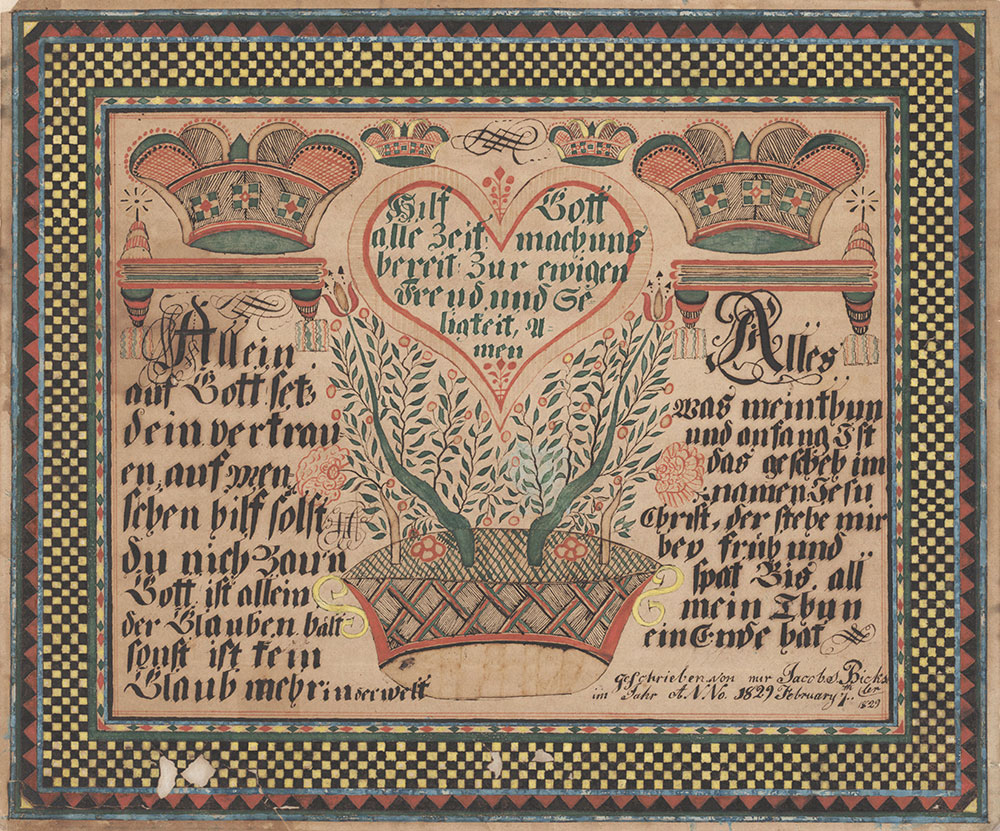 Hilf Gott
alle Zeit machuns
bereit Zur ewigen
Freud und Se
ligkeit, A=
men
Allein
auf Gott setz
dein vertrau
en, auf men
schen hilf sollst
du nich Baun
Gott ist allein
der Glauben hält
sonst ist kein
Glaub mehr in der welt
Alles
was mein thun
und anfang Ist
das gescheh im
namen Jesu
Christ, der stehe mir
bey früh und
spat Bis all
mein Thun
ein Ende hat
geschrieben von mir Jacob S Bicks
ler
im Jahr A.N.No. 1829 February 7th
1829